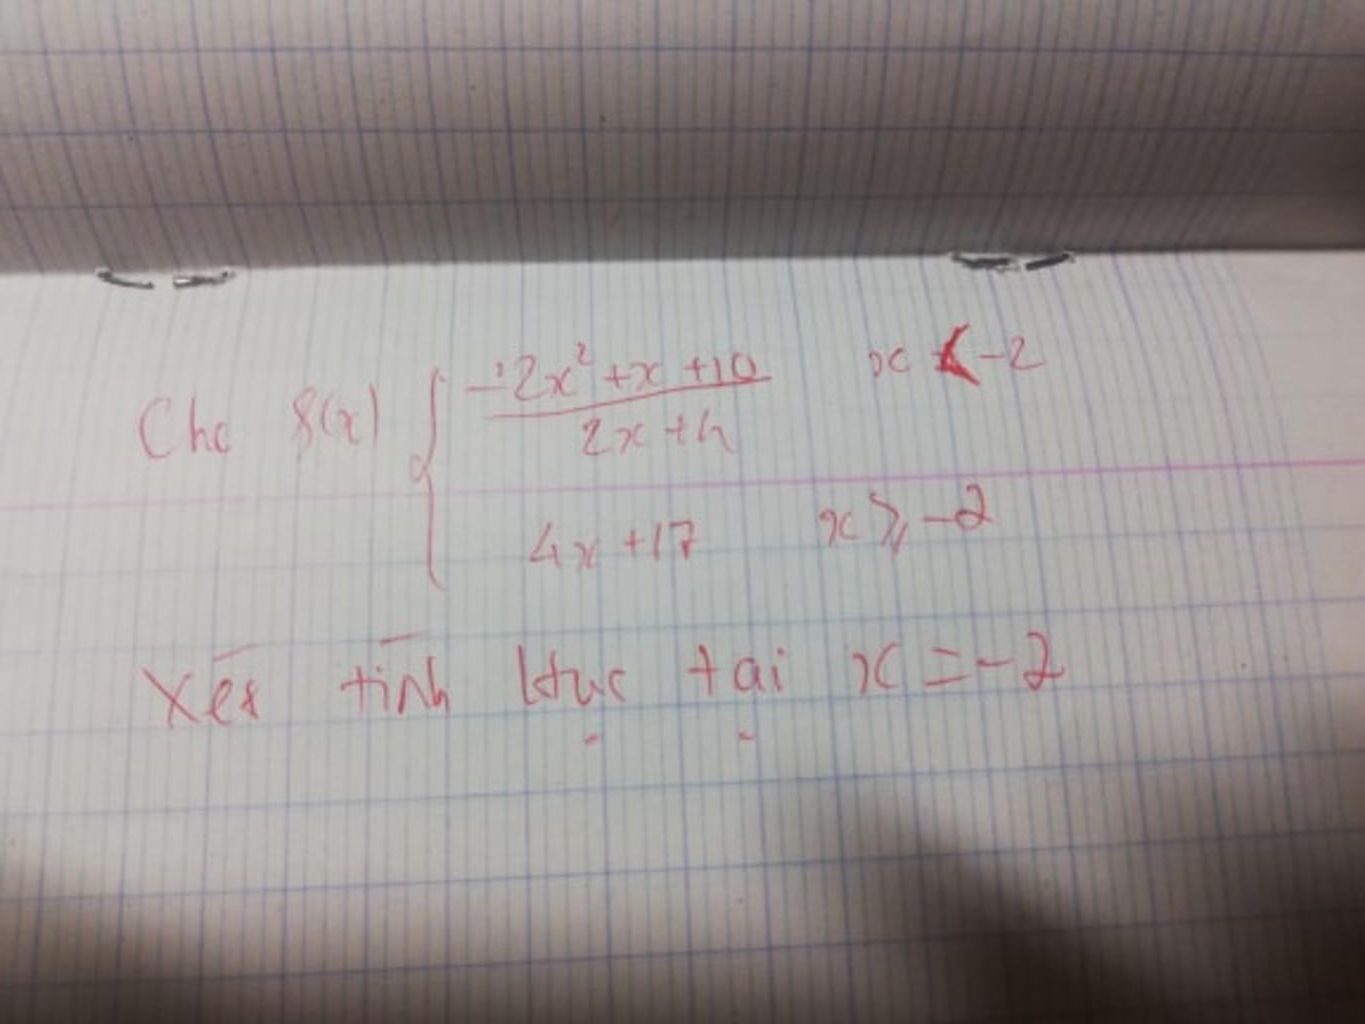 Cho f(x) { -2x² + x + 10 / 2x + 4   x < -2
4x + 17   x ⩾ -2
Xét tính ltục tại x = -2